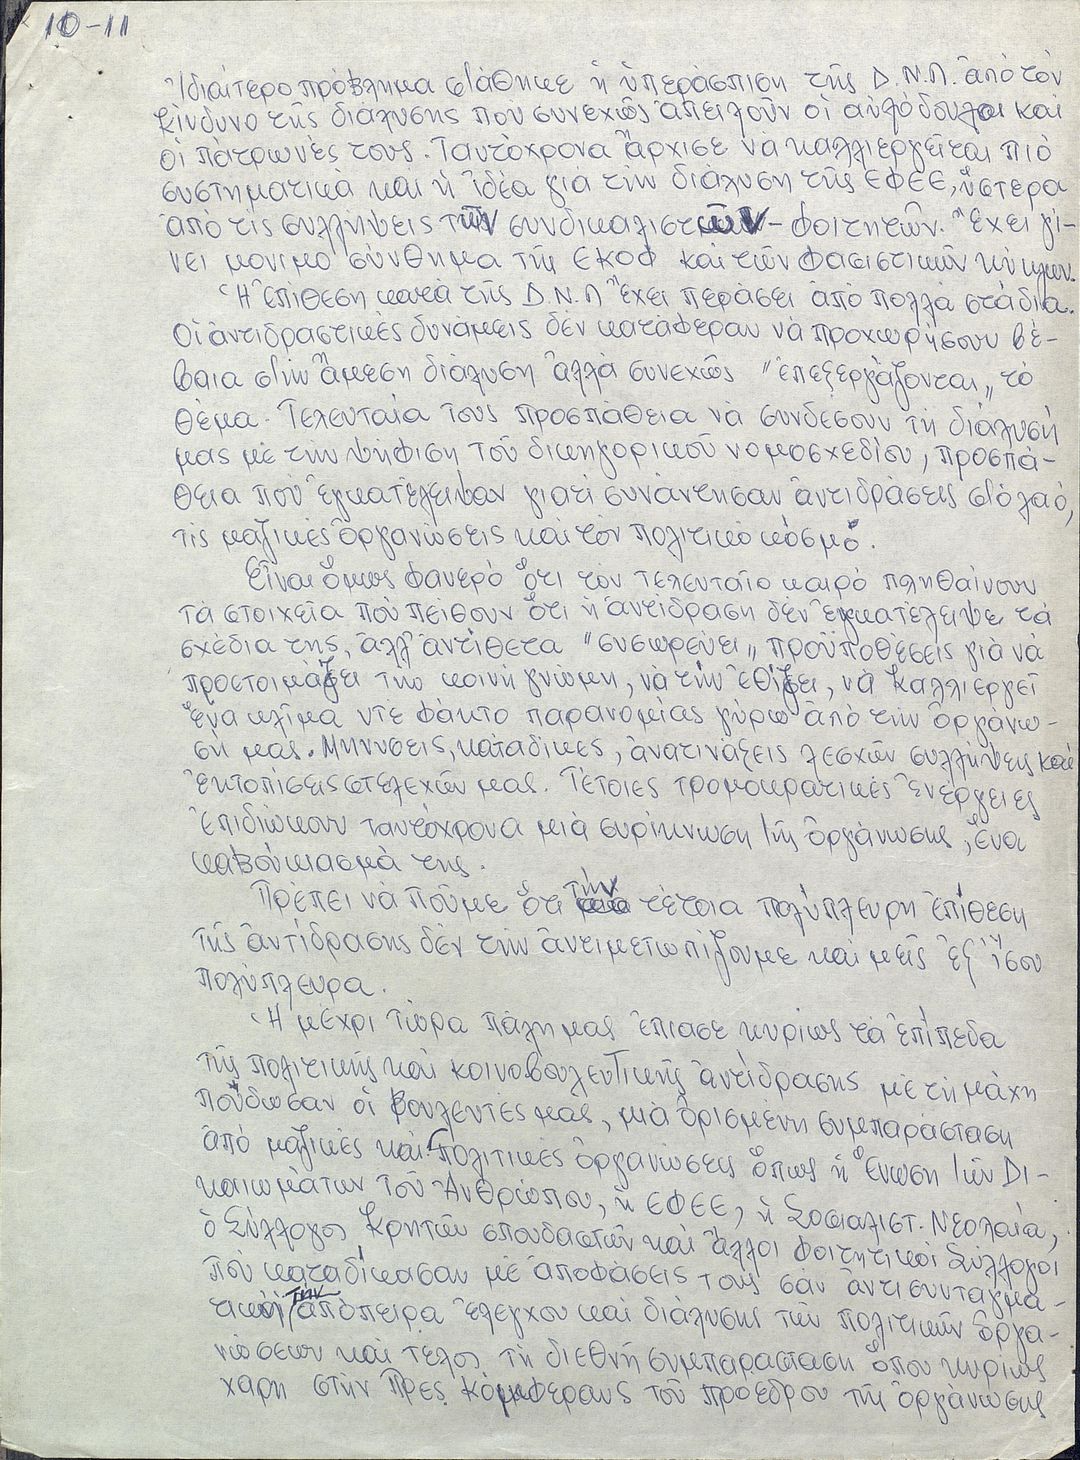 10-11
Ἰδιαίτερο πρόβλημα στάθηκε ἡ ὑπεράσπιση τῆς Δ.Ν.Λ. ἀπό τόν
κίνδυνο τῆς διάλυσης πού συνεχῶς ἀπειλοῦν οἱ αὐλόδουλοι καί
οἱ πάτρωνές τους. Ταυτόχρονα ἄρχισε νά καλλιεργεῖται πιό
συστηματικά καί ἡ ἰδέα γιά τήν διάλυση τῆς ΕΦΕΕ, ὕστερα
ἀπό τίς συλλήψεις τῶν συνδικαλιστῶν - φοιτητῶν. Ἔχει γί-
νει μόνιμο σύνθημα τῆς ΕΚΟΦ καί τῶν φασιστικῶν κύκλων.
Ἡ ἐπίθεση κατά τῆς Δ.Ν.Λ ἔχει περάσει ἀπό πολλά στάδια.
Οἱ ἀντιδραστικές δυνάμεις δέν κατάφεραν νά προχωρήσουν βέ-
βαια στήν ἄμεση διάλυση ἀλλά συνεχῶς "ἐπεξεργάζονται„ τό
θέμα. Τελευταία τους προσπάθεια νά συνδέσουν τή διάλυσή
μας μέ τήν ψήφιση τοῦ δικηγορικοῦ νομοσχεδίου, προσπά-
θεια πού ἐγκατέλειψαν γιατί συνάντησαν ἀντιδράσεις στό λαό,
τίς μαζικές ὀργανώσεις καί τόν πολιτικό κόσμο.
Εἶναι ὅμως φανερό ὅτι τόν τελευταῖο καιρό πληθαίνουν
τά στοιχεῖα πού πείθουν ὅτι ἡ ἀντίδραση δέν ἐγκατέλειψε τά
σχέδιά της, ἀλλ' ἀντίθετα "συσωρεύει„ προϋποθέσεις γιά νά
προετοιμάζει τήν κοινή γνώμη, νά τήν ἐθίζει, νά καλλιεργεῖ
ἕνα κλίμα ντέ φάκτο παρανομίας γύρω ἀπό τήν ὀργάνω-
σή μας. Μηνύσεις, καταδίκες, ἀνατινάξεις λεσχῶν συλλήψεις καί
ἐκτοπίσεις στελεχῶν μας. Τέτοιες τρομοκρατικές ἐνέργειες
ἐπιδιώκουν ταυτόχρονα μιά συρίκνωση τῆς ὀργάνωσης, ἕνα
καβούκιασμά της.
Πρέπει νά ποῦμε ὅτι τήν τέτοια πολύπλευρη ἐπίθεση
τῆς ἀντίδρασης δέν τήν ἀντιμετωπίζουμε καί μεῖς ἐξ ἴσου
πολύπλευρα.
Ἡ μέχρι τώρα πάλη μας ἔπιασε κυρίως τά ἐπίπεδα
τῆς πολιτικῆς καί κοινοβουλευτικῆς ἀντίδρασης μέ τή μάχη
πούδωσαν οἱ βουλευτές μας, μιά ὁρισμένη συμπαράσταση
ἀπό μαζικές καί πολιτικές ὀργανώσεις ὅπως ἡ Ἕνωση τῶν Δι-
καιωμάτων τοῦ Ἀνθρώπου, ἡ ΕΦΕΕ, ἡ Σοσιαλιστ. Νεολαία,
ὁ Σύλλογος Κρητῶν σπουδαστῶν καί ἄλλοι φοιτητικοί Σύλλογοι
πού καταδίκασαν μέ ἀποφάσεις τους σάν ἀντισυνταγμα-
τική τήν ἀπόπειρα ἐλέγχου καί διάλυσης τῶν πολιτικῶν ὀργα-
νώσεων καί τέλος τή διεθνῆ συμπαράσταση ὅπου κυρίως
χάρη στήν Πρές Κόμφερανς τοῦ προέδρου τῆς ὀργάνωσης